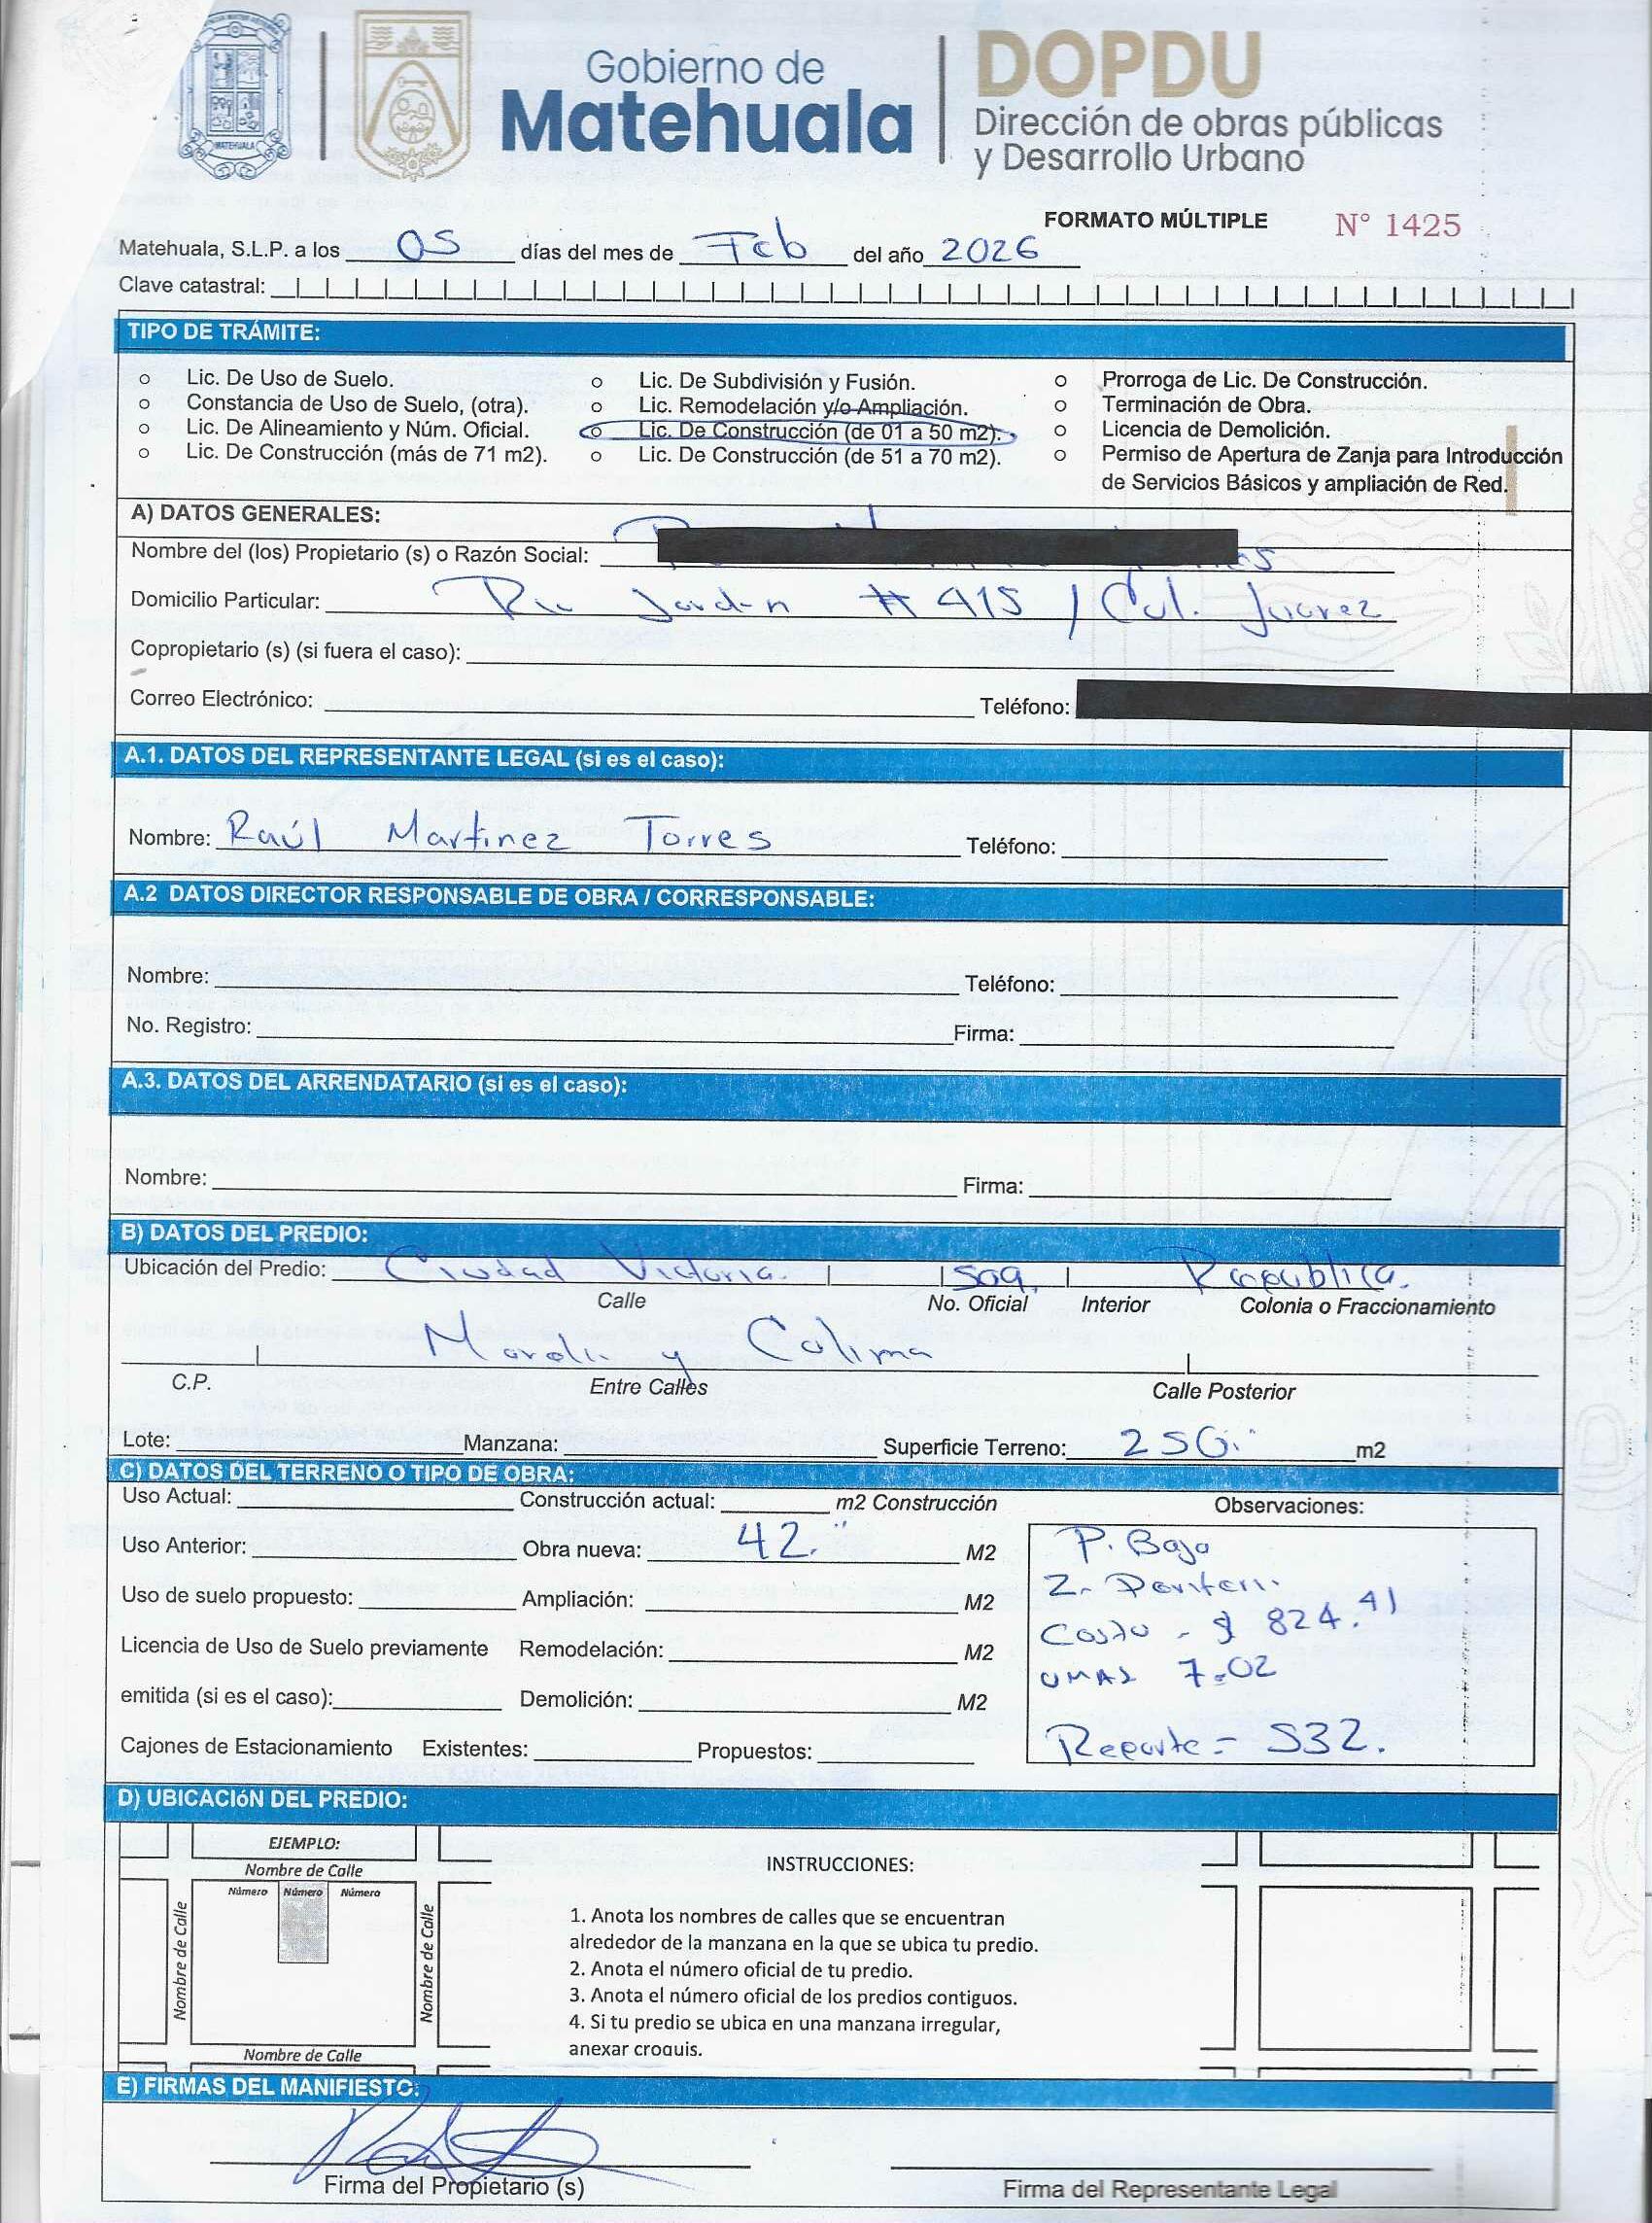 MATEHUALA
Gobierno de
Matehuala
DOPDU
Dirección de obras públicas
y Desarrollo Urbano
FORMATO MÚLTIPLE N° 1425
Matehuala, S.L.P. a los 05 días del mes de Feb del año 2026
Clave catastral:
TIPO DE TRÁMITE:
o Lic. De Uso de Suelo. o Lic. De Subdivisión y Fusión. o Prorroga de Lic. De Construcción.
o Constancia de Uso de Suelo, (otra). o Lic. Remodelación y/o Ampliación. o Terminación de Obra.
o Lic. De Alineamiento y Núm. Oficial. o Lic. De Construcción (de 01 a 50 m2). o Licencia de Demolición.
o Lic. De Construcción (más de 71 m2). o Lic. De Construcción (de 51 a 70 m2). o Permiso de Apertura de Zanja para Introducción
de Servicios Básicos y ampliación de Red.
A) DATOS GENERALES:
Nombre del (los) Propietario (s) o Razón Social:
Domicilio Particular: Rio Jordan # 415 / Col. Juarez
Copropietario (s) (si fuera el caso):
Correo Electrónico: Teléfono:
A.1. DATOS DEL REPRESENTANTE LEGAL (si es el caso):
Nombre: Raúl Martinez Torres Teléfono:
A.2 DATOS DIRECTOR RESPONSABLE DE OBRA / CORRESPONSABLE:
Nombre: Teléfono:
No. Registro: Firma:
A.3. DATOS DEL ARRENDATARIO (si es el caso):
Nombre: Firma:
B) DATOS DEL PREDIO:
Ubicación del Predio: Ciudad Victoria. 509. Republica.
Calle No. Oficial Interior Colonia o Fraccionamiento
y Colima
C.P. Entre Calles Calle Posterior
Lote: Manzana: Superficie Terreno: m2
C) DATOS DEL TERRENO O TIPO DE OBRA:
Uso Actual: Construcción actual: m2 Construcción Observaciones:
Uso Anterior: Obra nueva: 42. M2 P. Baja
Uso de suelo propuesto: Ampliación: M2
Costo - $ 824.41
Licencia de Uso de Suelo previamente Remodelación: M2
UMAS 7.02
emitida (si es el caso): Demolición: M2
Cajones de Estacionamiento Existentes: Propuestos: Reporte = 532.
D) UBICACIÓN DEL PREDIO:
EJEMPLO:
Nombre de Calle
Número Número Número
Nombre de Calle
Nombre de Calle
Nombre de Calle
INSTRUCCIONES:
1. Anota los nombres de calles que se encuentran
alrededor de la manzana en la que se ubica tu predio.
2. Anota el número oficial de tu predio.
3. Anota el número oficial de los predios contiguos.
4. Si tu predio se ubica en una manzana irregular,
anexar croquis.
E) FIRMAS DEL MANIFIESTO:
Firma del Propietario (s) Firma del Representante Legal